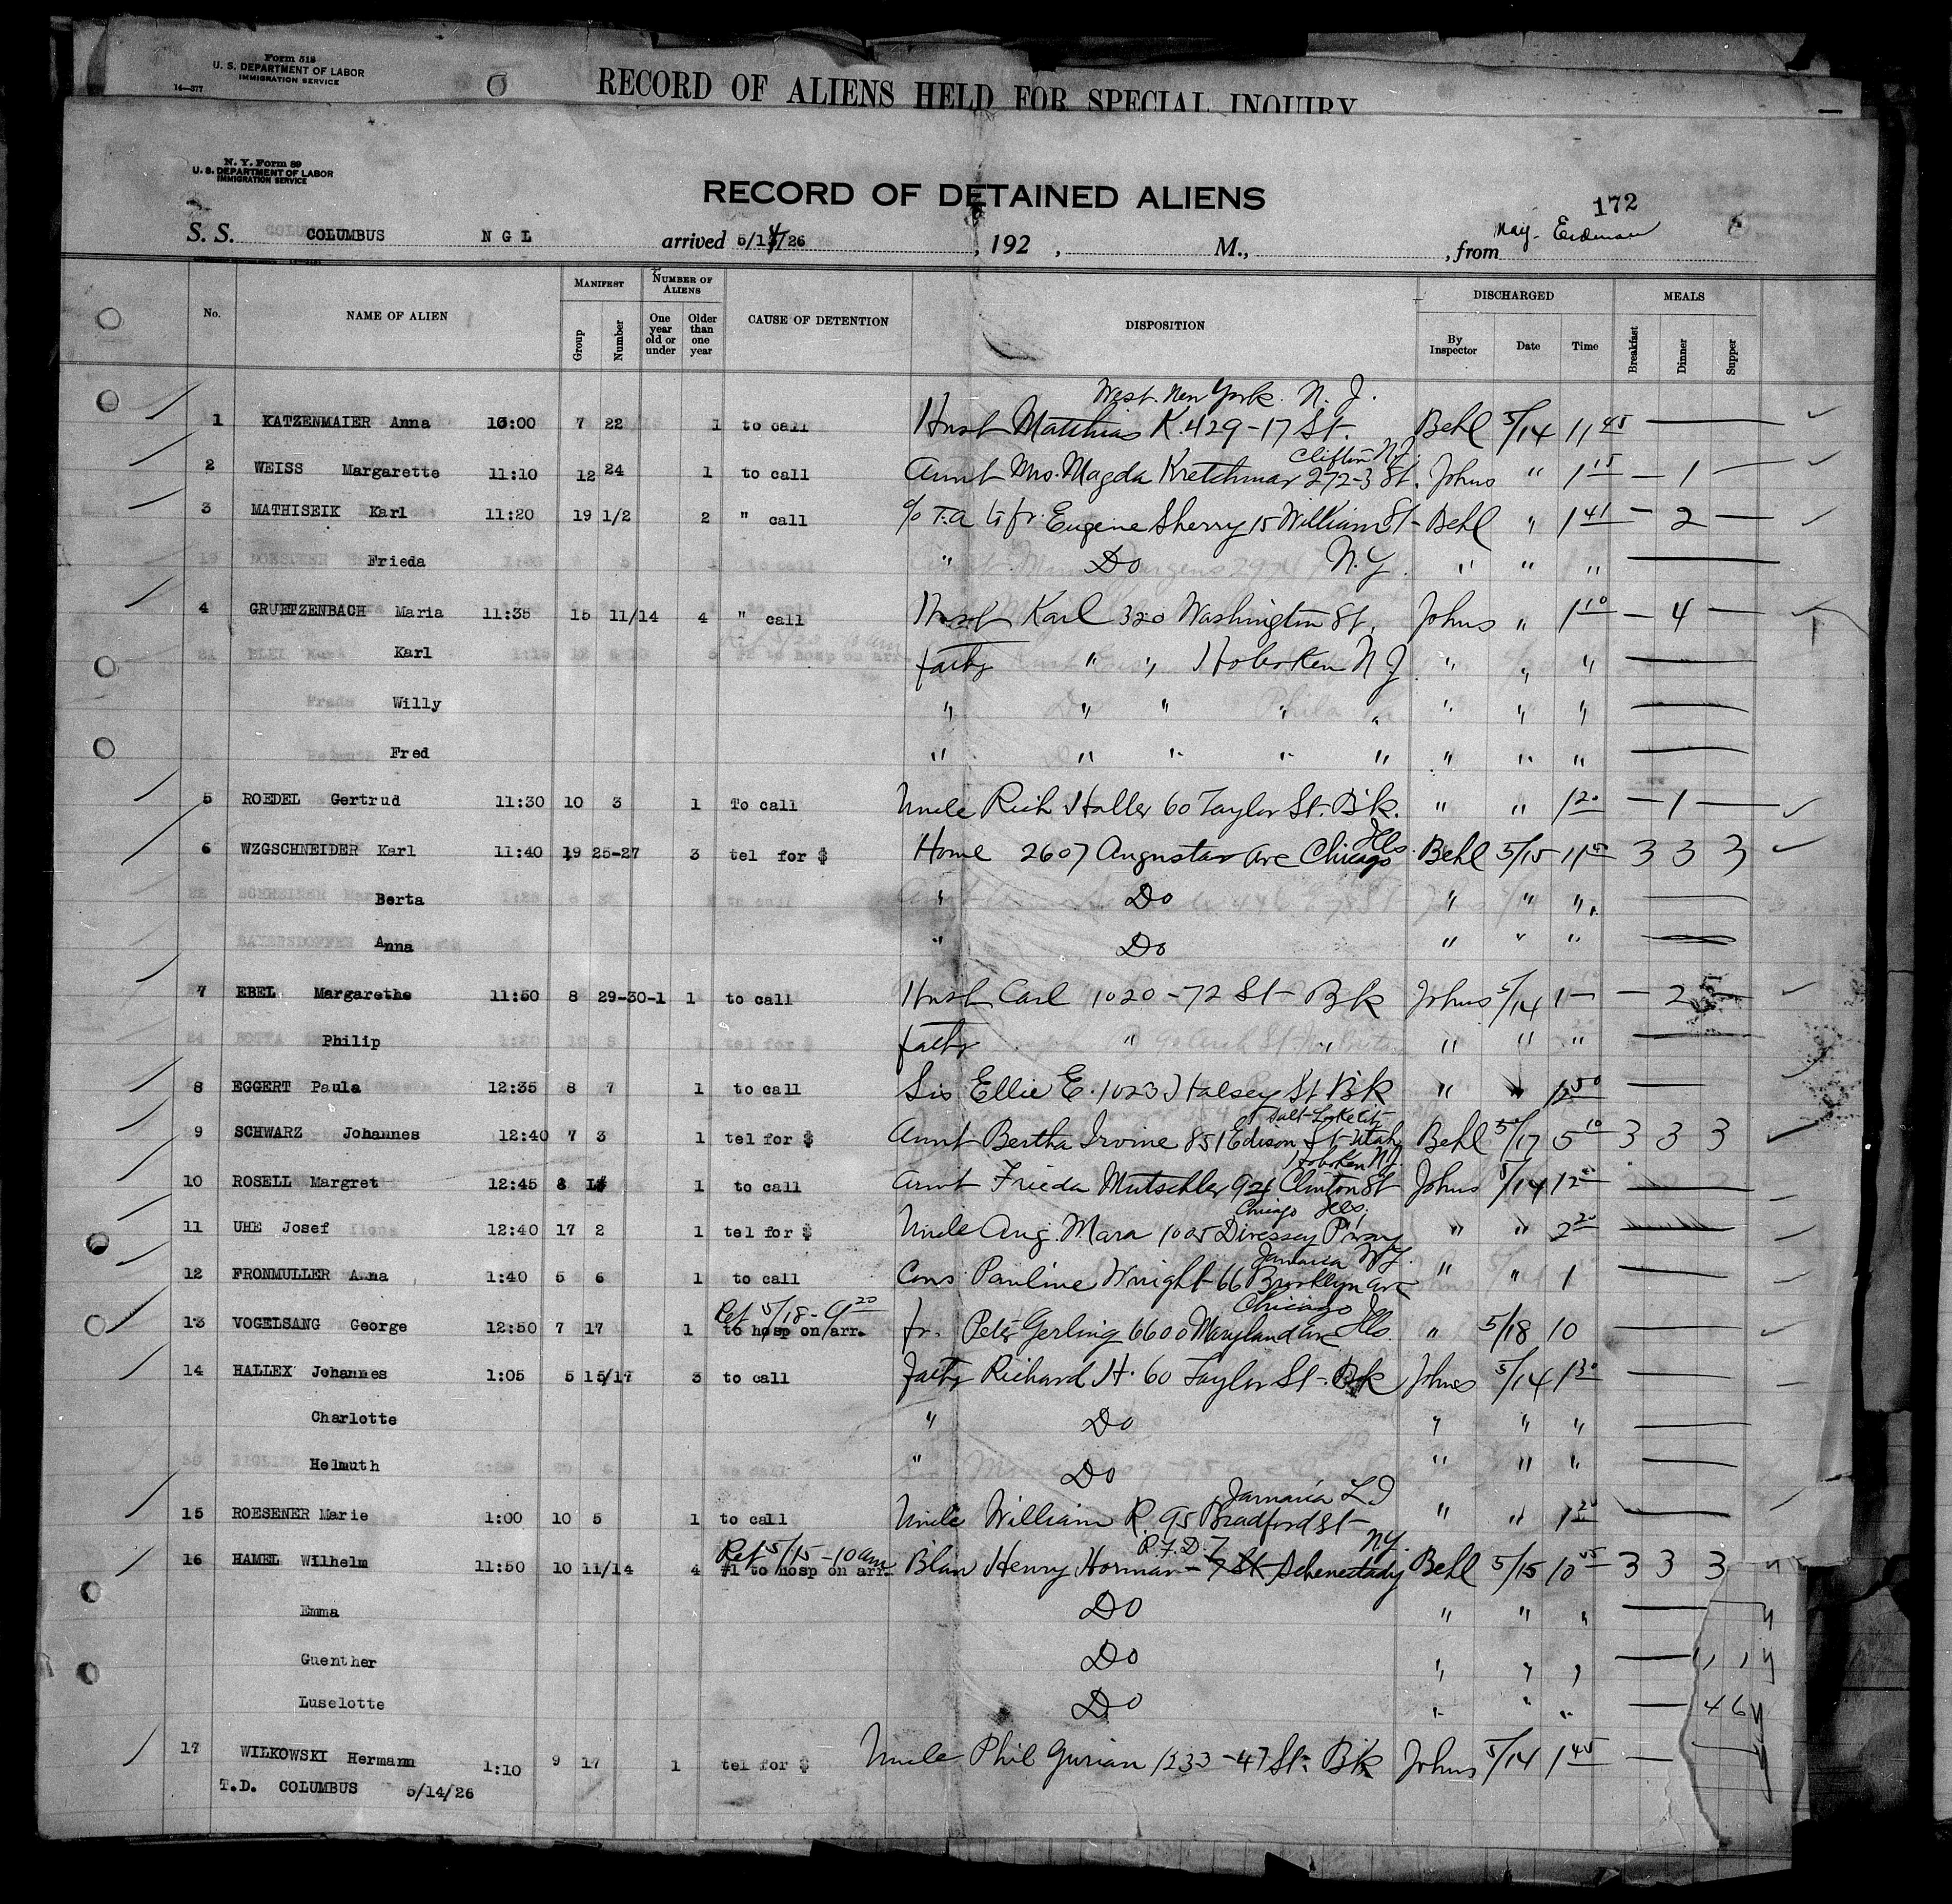 Form 518
U. S. DEPARTMENT OF LABOR
IMMIGRATION SERVICE
14—377
RECORD OF ALIENS HELD FOR SPECIAL INQUIRY
N. Y. Form 89
U. S. DEPARTMENT OF LABOR
IMMIGRATION SERVICE
RECORD OF DETAINED ALIENS
172
S. S. COLUMBUS N G L arrived 5/14/26, 192 , M., , from
No. NAME OF ALIEN MANIFEST Group Number NUMBER OF ALIENS One year old or under Older than one year CAUSE OF DETENTION DISPOSITION DISCHARGED By Inspector Date Time MEALS Breakfast Dinner Supper
West New York N. J.
1 KATZENMAIER Anna 10:00 7 22 1 to call Husb Matthias K. 429-17 St. Behl 5/14 11 45
Clifton N.J.
2 WEISS Margarette 11:10 12 24 1 to call Aunt Mrs. Magda Kretchmar 272-3 St. Johns " 1 15 — 1 —
3 MATHISEIK Karl 11:20 19 1/2 2 " call c/o T.a to fr. Eugene Sherry 15 William St- Behl " 1 41 — 2 —
Frieda " Do N.Y. " " "
4 GRUETZENBACH Maria 11:35 15 11/14 4 " call Husb Karl 320 Washington St. Johns " 1 10 — 4 —
Karl fathr " " Hoboken N J. " " "
Willy " " " " " " " "
Fred " " " " " " " "
5 ROEDEL Gertrud 11:30 10 3 1 To call Uncle Rich Haller 60 Taylor St. Bk. " " 1 20 — 1 —
Ills.
6 WZGSCHNEIDER Karl 11:40 19 25-27 3 tel for $ Home 2607 Augustar Ave Chicago Behl 5/15 3 3 3
Berta " Do " " "
Anna " Do " " "
7 EBEL Margarethe 11:50 8 29-30-1 1 to call Husb Carl 1020-72 St- Bk Johns 5/14 1— — 2
Philip fathr " " " " "
8 EGGERT Paula 12:35 8 7 1 to call Sis Ellie E. 1023 Halsey St Bk " " 12 50
Salt-Lake City
9 SCHWARZ Johannes 12:40 7 3 1 tel for $ Aunt Bertha Irvine 851 Edison St-Utah Behl 5/17 5 10 3 3 3
Hoboken N.J.
10 ROSELL Margret 12:45 8 1 to call Aunt Frieda Mutschler 921 Clinton St Johns 5/14
Chicago Ills.
11 UHE Josef 12:40 17 2 1 tel for $ Uncle Aug. Mara 1005 Diressey P'way " " 2 20
Jamaica N.Y.
12 FRONMULLER Anna 1:40 5 6 1 to call Cous Pauline Wright-66 Brooklyn ave " " 1
Ret 5/18-9 20 Chicago
13 VOGELSANG George 12:50 7 17 1 to hosp on arr. fr. Peter Gerling 6600 Maryland ave Ills. " 5/18 10
14 HALLEX Johannes 1:05 5 15/17 3 to call Fathr Richard H. 60 Taylor St- Bk Johns 5/14 1 30
Charlotte " Do " " "
Helmuth " Do " " "
Jamaica L.I
15 ROESENER Marie 1:00 10 5 1 to call Uncle William R. 95 Bradford St- " " 1 20
Ret 5/15-10 am R.F.D. 7 N.Y.
16 HAMEL Wilhelm 11:50 10 11/14 4 #1 to hosp on arr. Blaw Henry Horman- 7 St Schenectady Behl 5/15 10 55 3 3 3
Emma Do " " "
Guenther Do " " "
Luselotte Do " " " 46
17 WILKOWSKI Hermann 1:10 9 17 1 tel for $ Uncle Phil Gurian 1233-47 St- Bk Johns 5/14 1 45
T.D. COLUMBUS 5/14/26